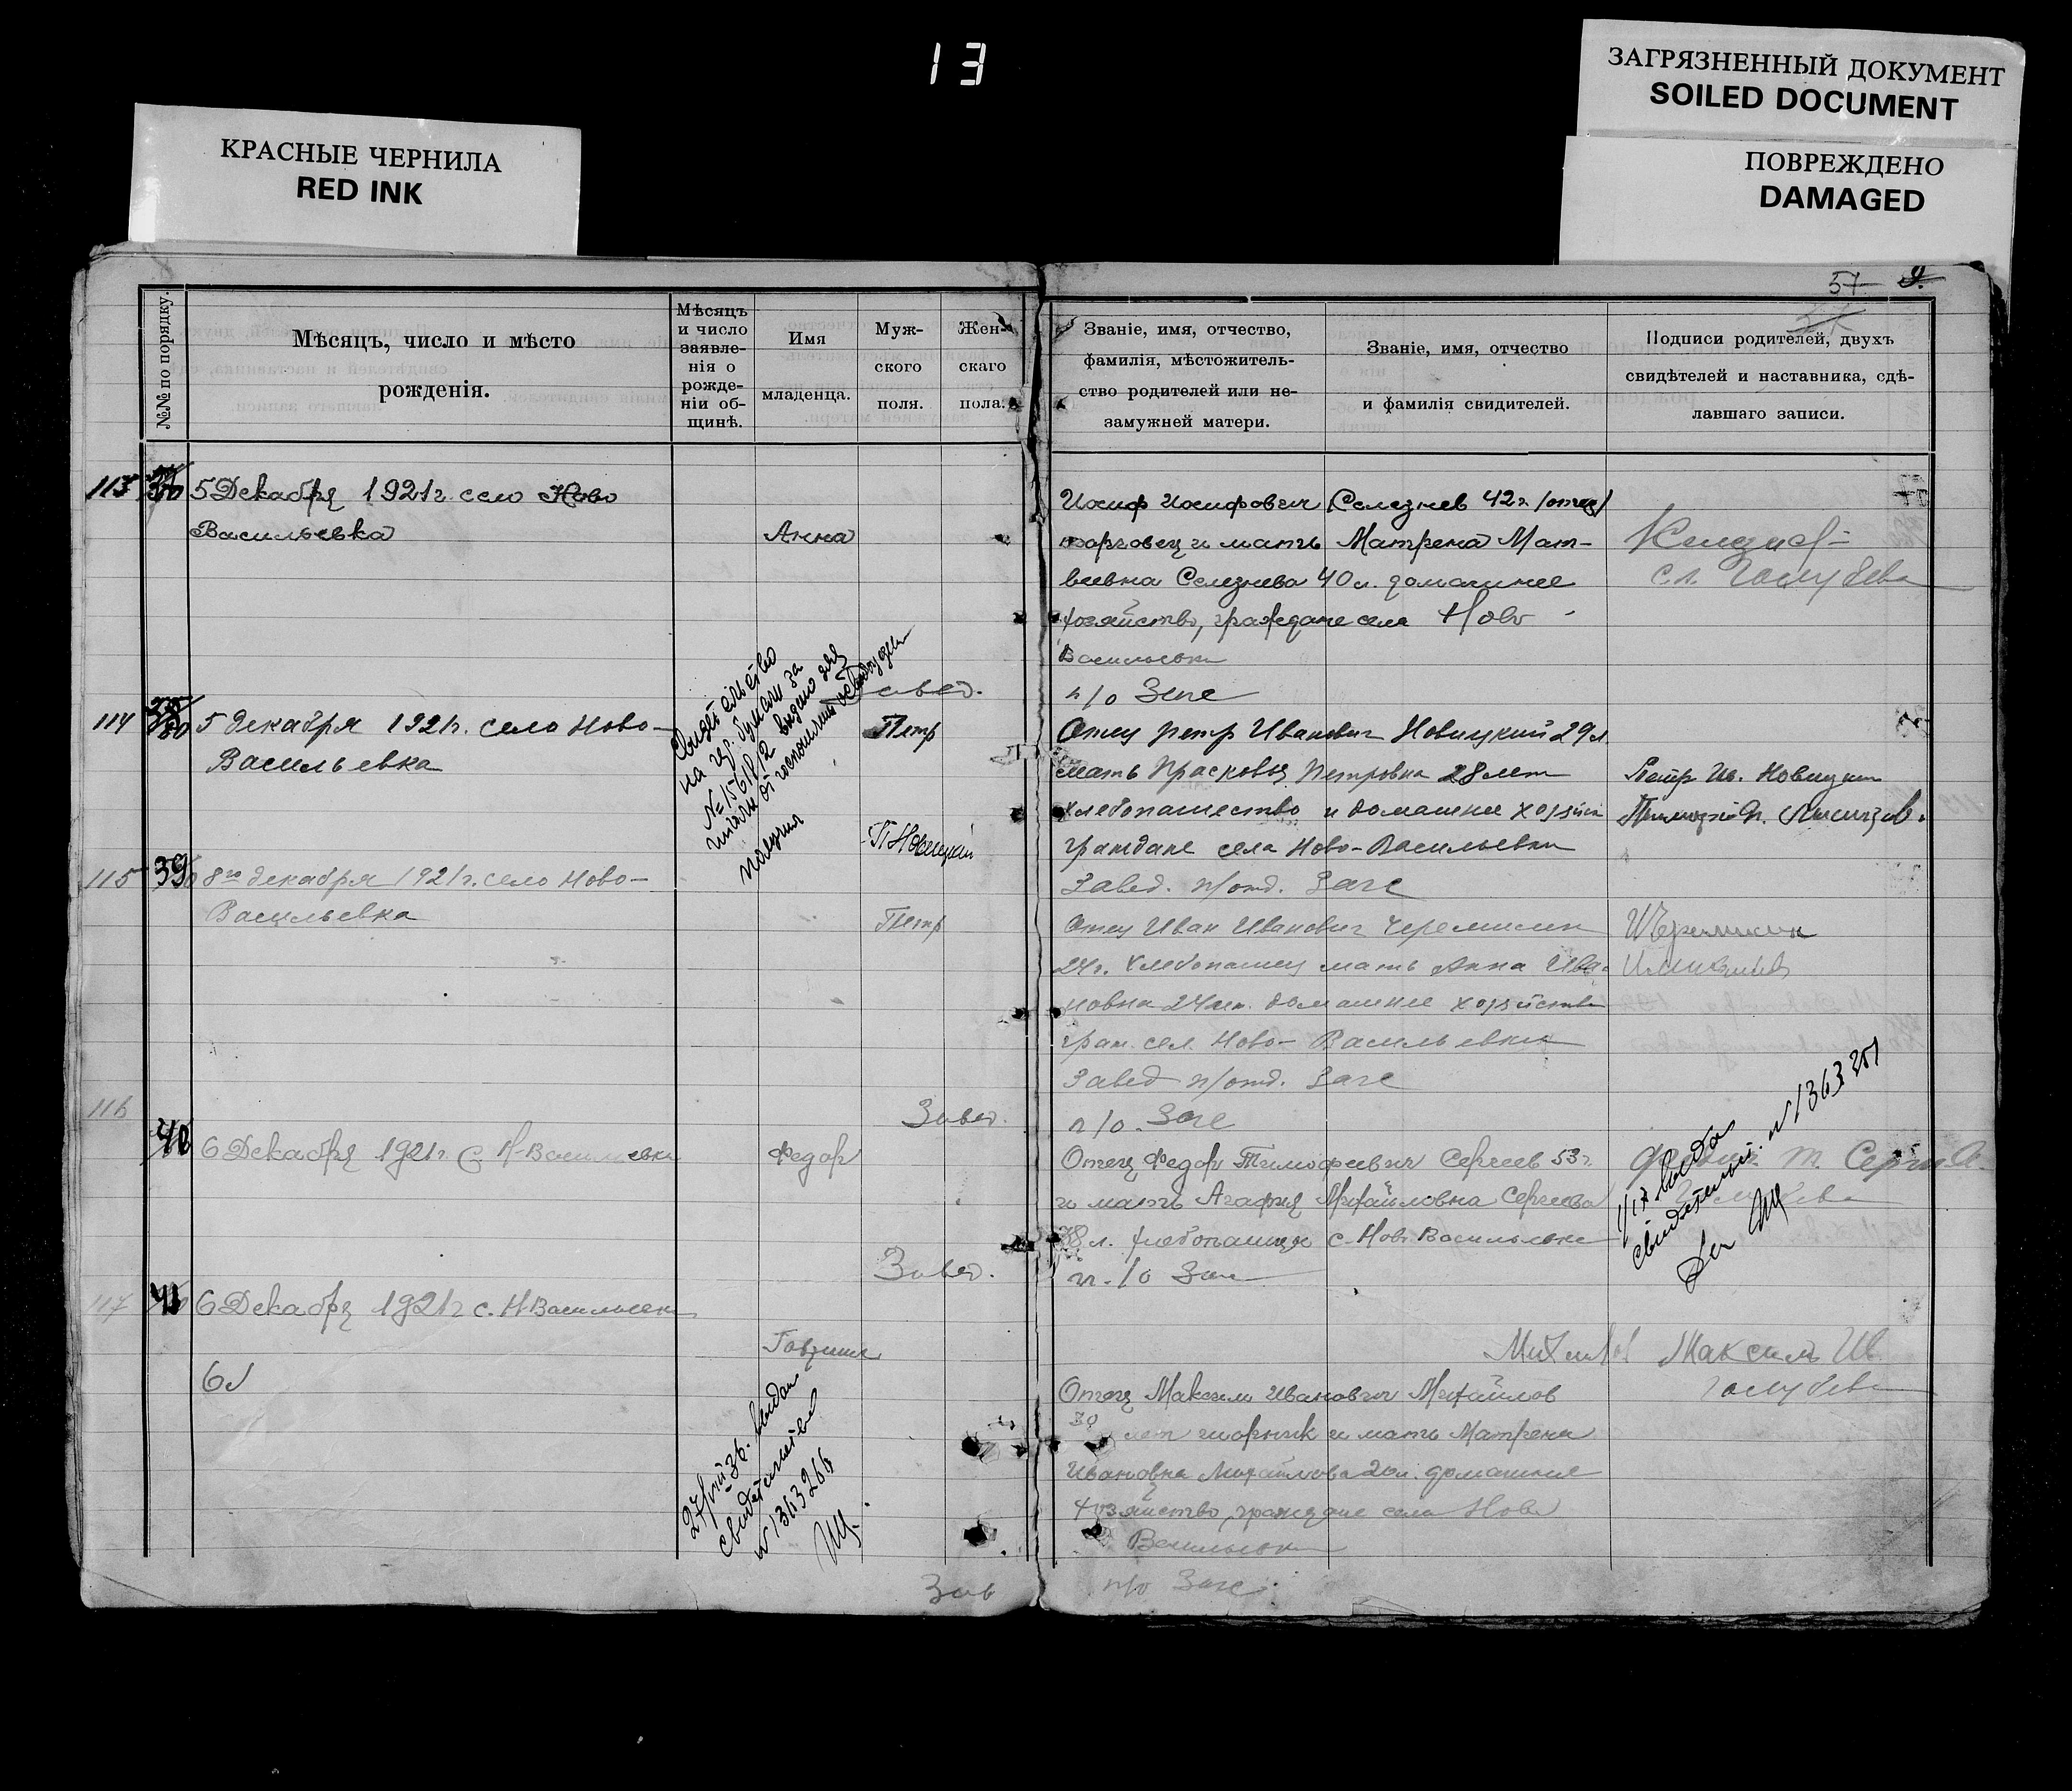 13
КРАСНЫЕ ЧЕРНИЛА
RED INK
ЗАГРЯЗНЕННЫЙ ДОКУМЕНТ
SOILED DOCUMENT
ПОВРЕЖДЕНО
DAMAGED
57
№№ по порядку.
Мѣсяцъ, число и мѣсто
рожденія.
Мѣсяцъ
и число
заявле-
нія о
рожде-
ніи об-
щинѣ.
Имя
младенца.
Муж-
ского
поля.
Жен-
скаго
пола.
Званіе, имя, отчество,
фамилія, мѣстожитель-
ство родителей или не-
замужней матери.
Званіе, имя, отчество
и фамилія свидителей.
Подписи родителей, двухъ
свидѣтелей и наставника, сдѣ-
лавшаго записи.
113
5 Декабря 1921 г. село Ново
Васильевка
Анна
Иосиф Иосифович Селезнев 42 г. /отец/
торговец и мать Матрена Мат-
веевна Селезнева 40 л. домашнее
хозяйство, граждане села Ново
Васильевки
п/о Загс
Голубева
114
5 декабря 1921 г. село Ново-
Васильевка
Свидетельство
на гер. бумаги за
№ 15618/2 выдано
Завед.
Петр
П Новицкий
Отец Петр Иванович Новицкий 29 л.
мать Прасковья Петровна 28 лет
хлебопашество и домашнее хозяйст
граждане села Ново-Васильевки
Завед. п/отд. Загс
Петр Ив. Новицкий
115 39 8го декабря 1921 г. село Ново-
Васильевка
Петр
Отец Иван Иванович Черемисин
24 г. хлебопашец мать Анна Ива-
новна 24 лет. домашнее хозяйство
граж. сел. Ново-Васильевки
Завед п/отд. Загс
116
40
6 Декабря 1921 г. С. Н-Васильевка
Федор
Завед.
п/о. Загс
Отец Федор Тимофеевич Сергеев 53 г.
и мать Агафия Михайловна Сергеева
38 л. хлебопашцы с. Ново Васильевки
Завед.
п./о Загс
выдано
свидетельст. № 1363201
117 41 6 Декабря 1921 г. с. Н-Васильевк
Гавриил
27/ 36. выдан
свидетельство
№ 1363266
Михайлов Максим Ив.
Голубева
Отец Максим Иванович Михайлов
30 лет шорник и мать Матрена
Ивановна Михайлова 20 л. домашнее
хозяйство, граждане села Ново
Васильевки
Зав п/о Загс